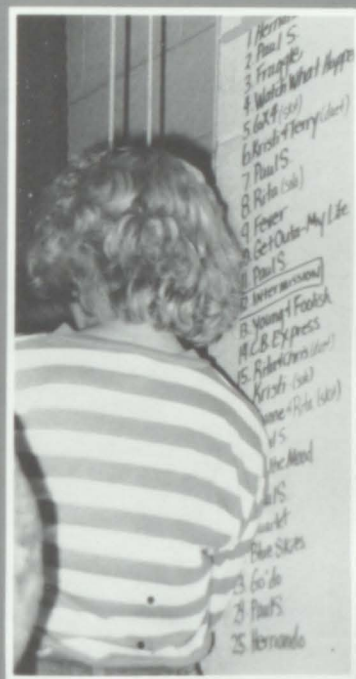 1 Hernan
2 Paul S.
3 Fragile
4 Watch What Happe
5 6x4 (skt)
6 Kristi & Terry (duet)
7 Paul S
8 Rita (solo)
9 Fever
Get Outa-My Life
11 Paul S
Intermission
13 Young & Foolish
14 C.B. Express
15. Rob & Chris (duet)
Kristi (solo)
& Rita (skt)
S
the Mood
S
Blue Skies
23 Go do
24 Paul S
25 Hernando